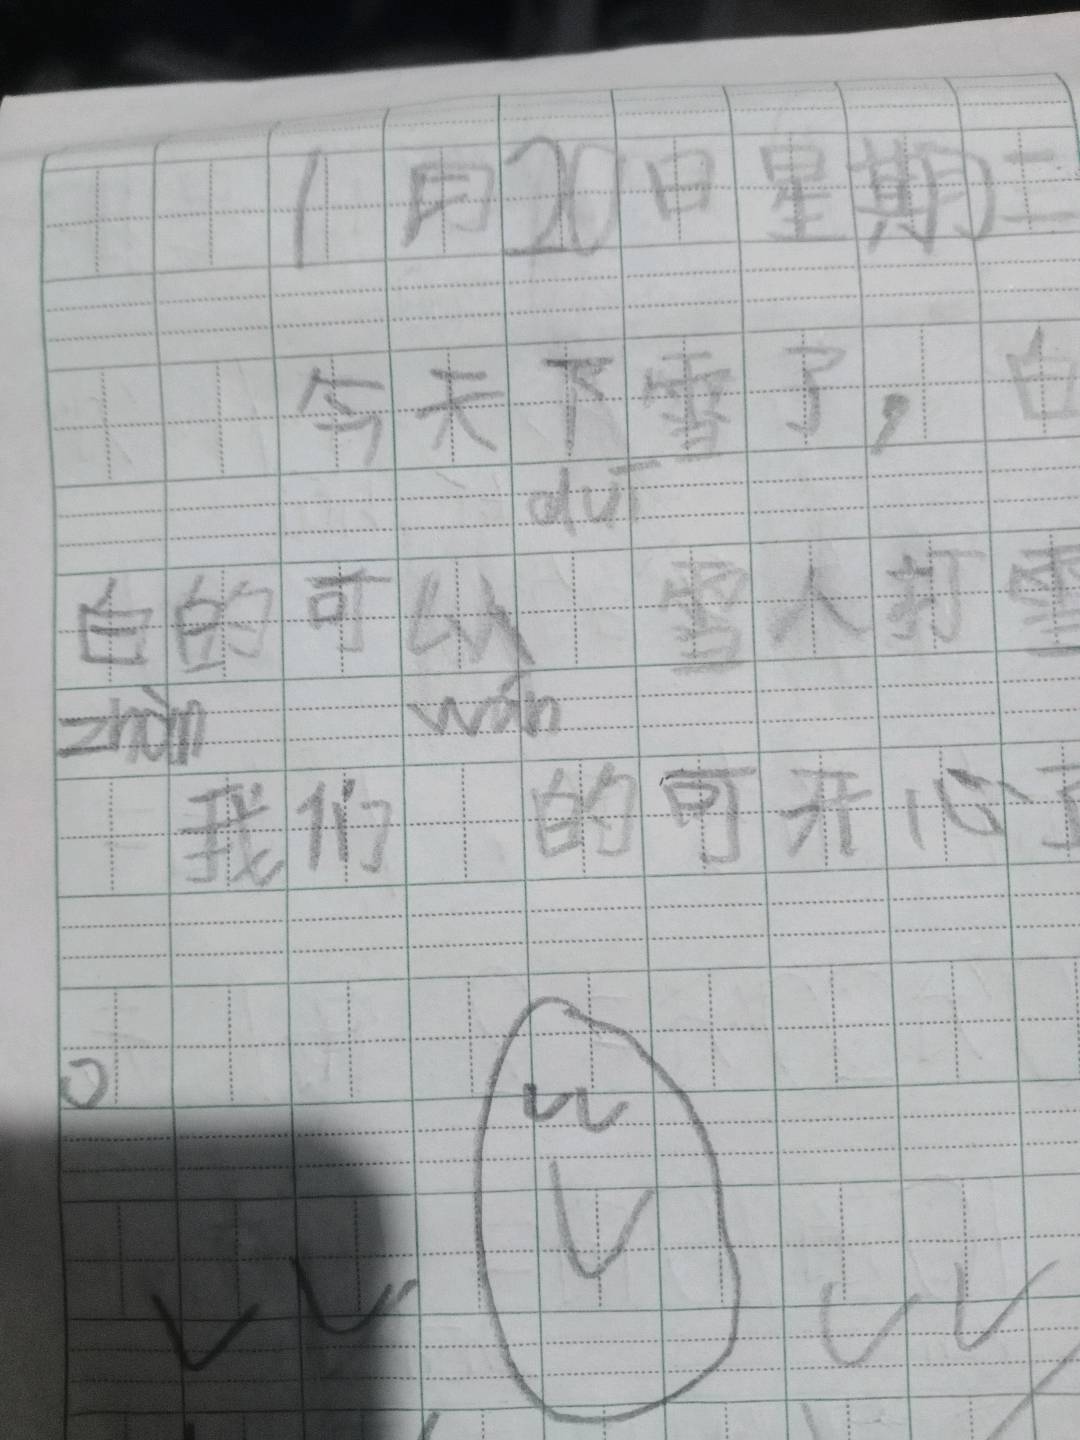 1月20日星期三
今天下雪了,白
duī
白的可以 雪人打雪
zhàn wán
我们 的可开心了
。